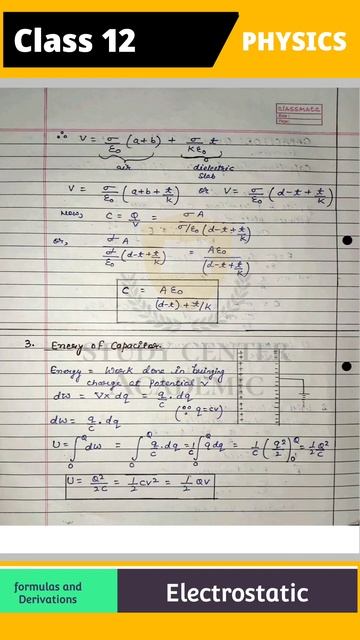 Class 12
PHYSICS
CLASSMATE
Date :
Page :
∴ V = σ/ε₀ (a+b) + σ/Kε₀ t
air dielectric slab
V = σ/ε₀ (a+b+t/K) or V = σ/ε₀ (d-t+t/K)
Now, C = Q/V = σA / σ/ε₀ (d-t+t/K)
or, σA / σ/ε₀ (d-t+t/K) = Aε₀ / (d-t+t/K)
C = Aε₀ / (d-t)+t/K
STUDY CENTER
3. Energy of Capacitor
Energy = Work done in bringing
charge at potential V
dw = V×dq = q/C . dq
(∵ q=cv)
dw = q/C . dq
U = ∫₀^Q dw = ∫₀^Q q/C . dq = 1/C ∫₀^Q q dq = 1/C (q²/2)₀^Q = 1/2 Q²/C
U = Q²/2C = 1/2 CV² = 1/2 QV
formulas and
Derivations
Electrostatic